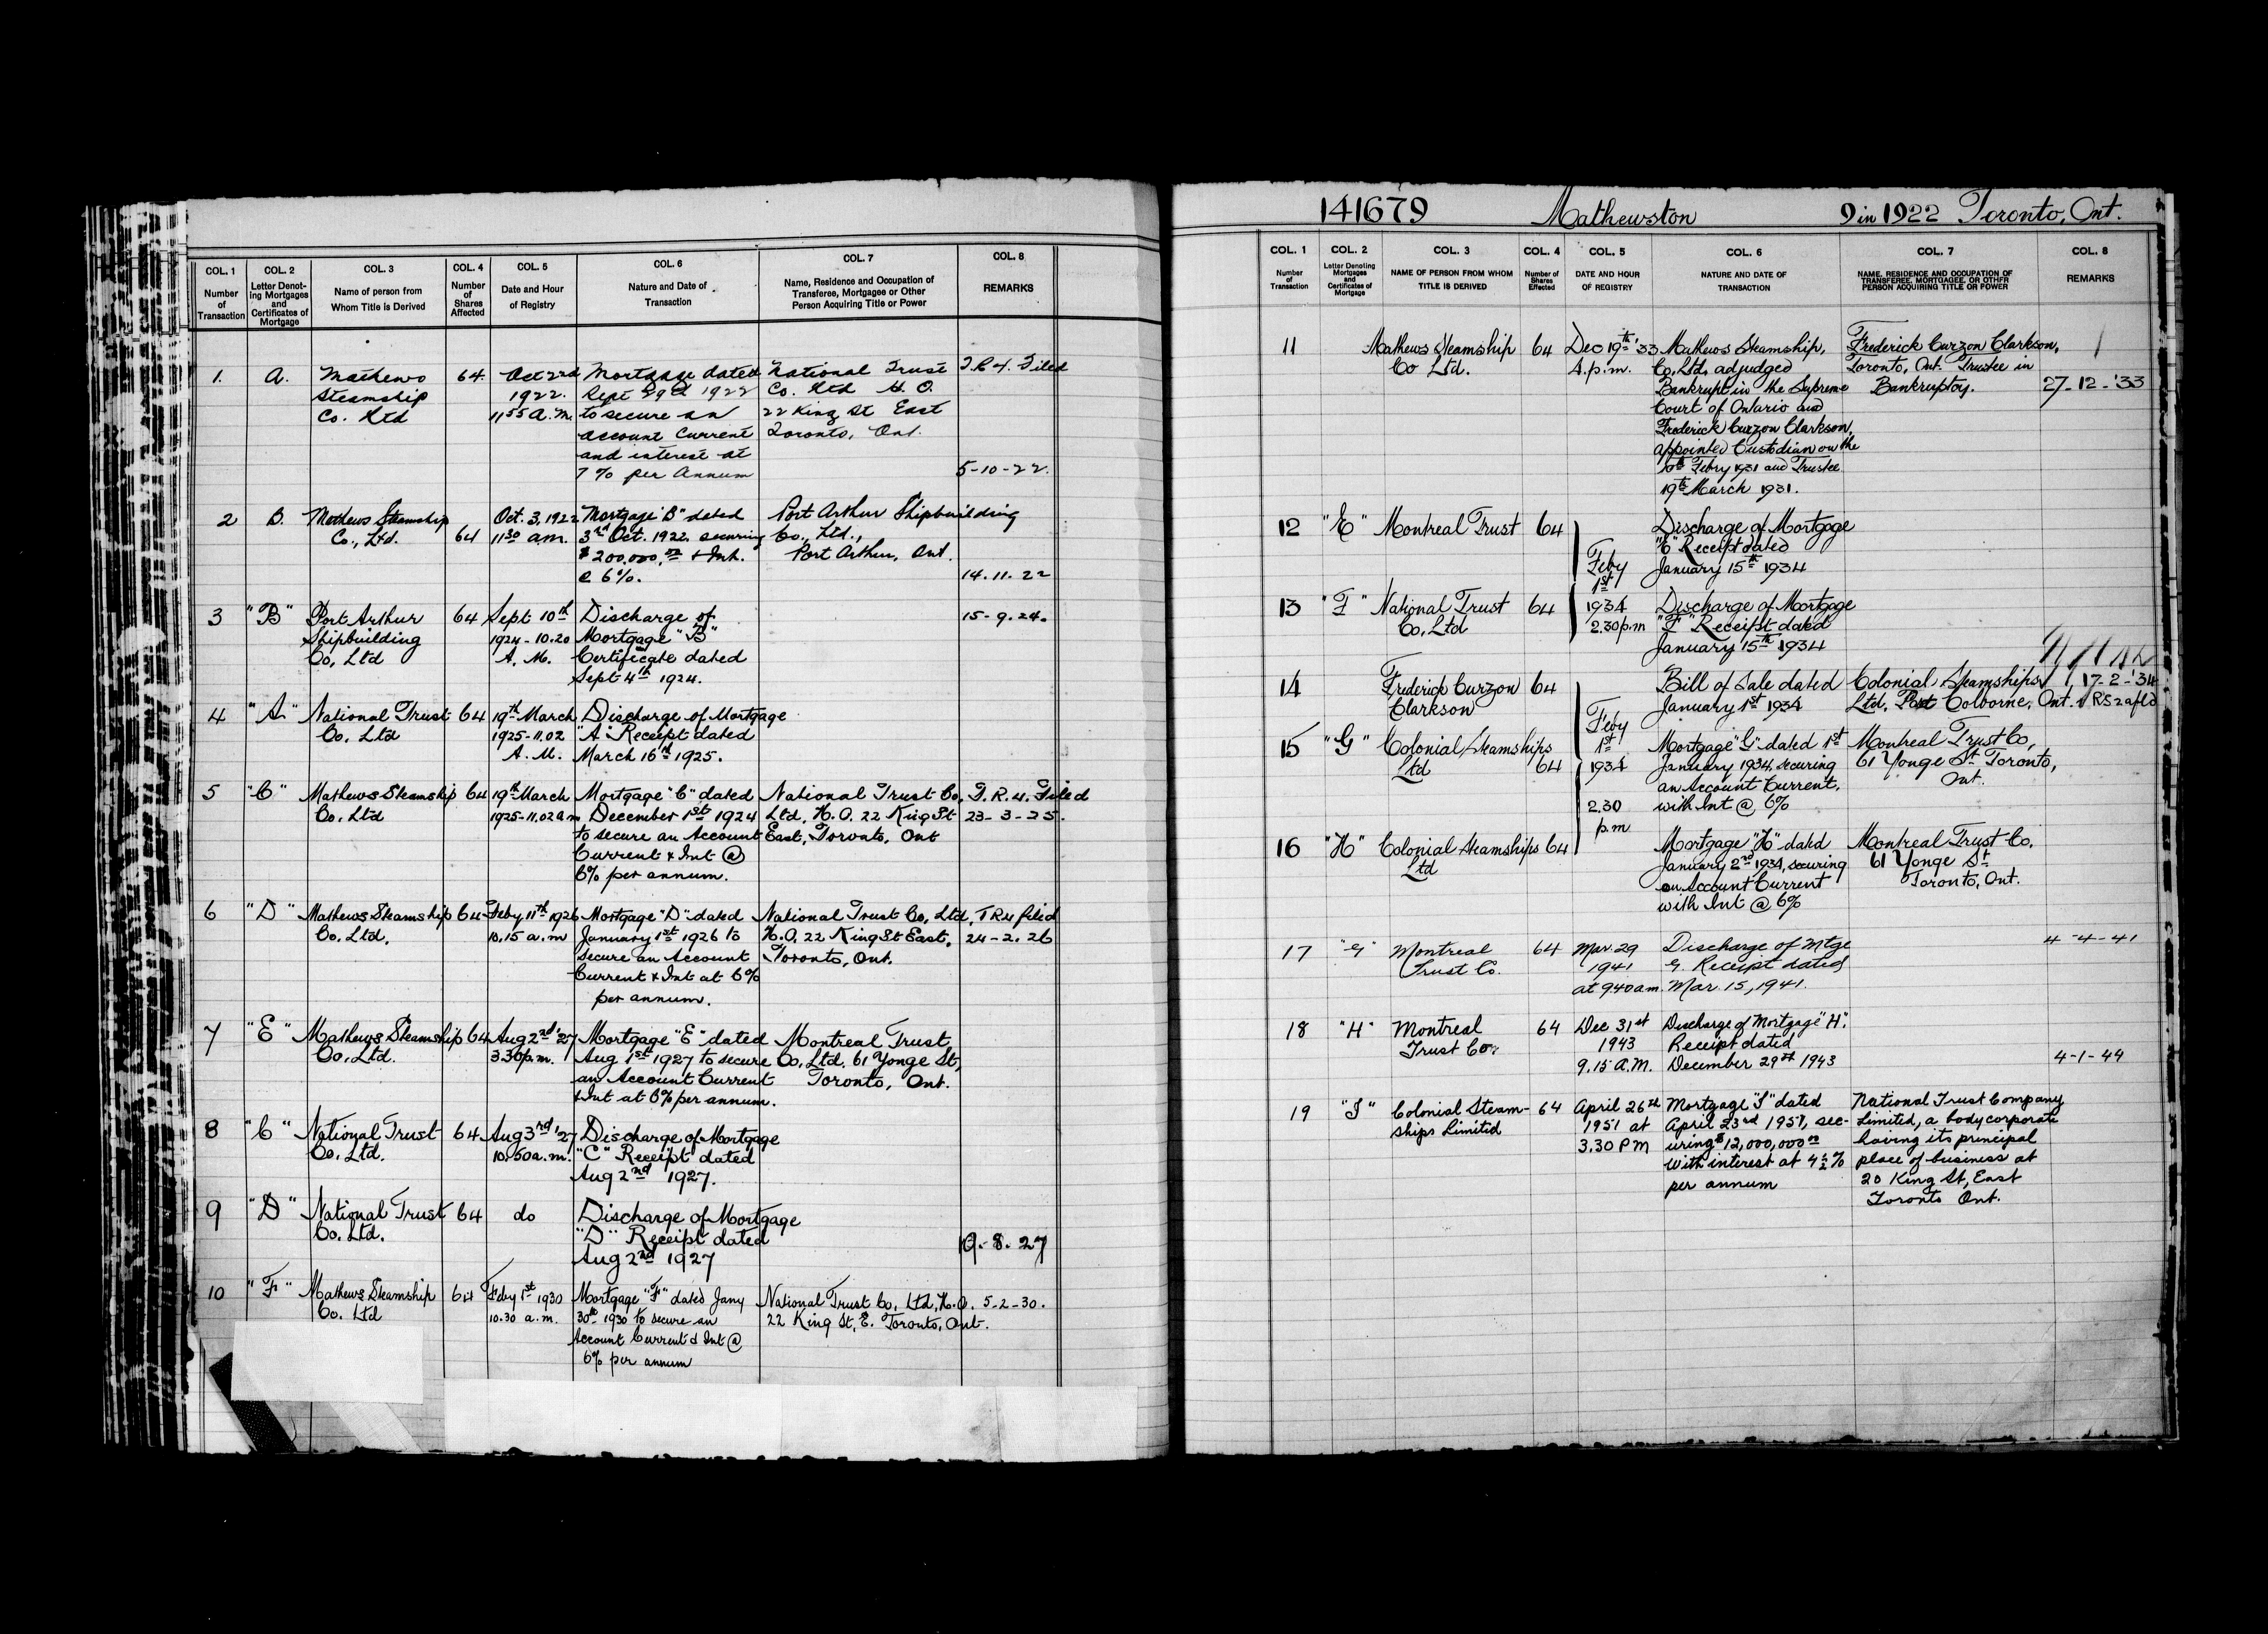 COL. 1
Number
of
Transaction
COL. 2
Letter Denot-
ing Mortgages
and
Certificates of
Mortgage
COL. 3
Name of person from
Whom Title is Derived
COL. 4
Number
of
Shares
Affected
COL. 5
Date and Hour
of Registry
COL. 6
Nature and Date of
Transaction
COL. 7
Name, Residence and Occupation of
Transferee, Mortgagee or Other
Person Acquiring Title or Power
COL. 8
REMARKS
1. A. Mathews 64. Oct 2nd Mortgage dated National Trust T.R.4. Filed
Steamship 1922. Sept 29th 1922 Co. Ltd H.O.
Co. Ltd 11 55 A.M. to secure an 22 King St East
account current Toronto, Ont.
and interest at
7% per Annum 5-10-22.
2 B. Mathews Steamship Oct. 3, 1922 Mortgage "B" dated Port Arthur Shipbuilding
Co., Ltd. 64 11 30 a.m. 3rd Oct. 1922 securing Co., Ltd.,
$200,000.00 + Int. Port Arthur, Ont.
@ 6%. 14.11.22
3 "B" Port Arthur 64 Sept 10th Discharge of 15-9.24.
Shipbuilding 1924-10.20 Mortgage "B"
Co, Ltd A.M. Certificate dated
Sept 4th 1924.
4 "A" National Trust 64 19th March Discharge of Mortgage
Co. Ltd 1925-11.02 "A" Receipt dated
A.M. March 16th 1925.
5 "C" Mathews Steamship 64 19th March Mortgage "C" dated National Trust Co. T.R.4. Filed
Co. Ltd 1925-11.02 am December 1st 1924 Ltd, H.O. 22 King St 23-3-25.
to secure an Account East, Toronto, Ont
Current & Int @
6% per annum.
6 "D" Mathews Steamship 64 Feby 11th 1926 Mortgage "D" dated National Trust Co, Ltd, TR4 filed
Co. Ltd. 10.15 a.m January 1st 1926 to H.O. 22 King St East, 24-2.26
secure an Account Toronto, Ont.
Current & Int at 6%
per annum.
7 "E" Mathews Steamship 64 Aug 2nd '27 Mortgage "E" dated Montreal Trust
Co, Ltd. 3.30 p.m. Aug 1st 1927 to secure Co, Ltd. 61 Yonge St,
an Account Current Toronto, Ont.
& Int at 6% per annum.
8 "C" National Trust 64 Aug 3rd '27 Discharge of Mortgage
Co. Ltd. 10.50 a.m. "C" Receipt dated
Aug 2nd 1927.
9 "D" National Trust 64 do Discharge of Mortgage
Co. Ltd. "D" Receipt dated
Aug 2nd 1927 9-8-27
10 "F" Mathews Steamship 64 Feby 1st 1930 Mortgage "F" dated Jany National Trust Co, Ltd, H.O. 5-2-30.
Co. Ltd 10.30 a.m. 30th 1930 to secure an 22 King St, E. Toronto, Ont.
Account Current & Int @
6% per annum
141679 Mathewston 9 in 1922 Toronto, Ont.
COL. 1
Number
of
Transaction
COL. 2
Letter Denoting
Mortgages
and
Certificates of
Mortgage
COL. 3
NAME OF PERSON FROM WHOM
TITLE IS DERIVED
COL. 4
Number of
Shares
Effected
COL. 5
DATE AND HOUR
OF REGISTRY
COL. 6
NATURE AND DATE OF
TRANSACTION
COL. 7
NAME, RESIDENCE AND OCCUPATION OF
TRANSFEREE, MORTGAGEE, OR OTHER
PERSON ACQUIRING TITLE OR POWER
COL. 8
REMARKS
11 Mathews Steamship 64 Dec 19th '33 Mathews Steamship, Frederick Curzon Clarkson,
Co Ltd. 4.p.m. Co, Ltd, adjudged Toronto, Ont. Trustee in
Bankrupt in the Supreme Bankruptcy. 27-12-'33
Court of Ontario and
Frederick Curzon Clarkson,
appointed Custodian on the
10th Febry 1931 and Trustee
19th March 1931.
12 "E" Montreal Trust 64 Discharge of Mortgage
"E" Receipt dated
Feby January 15th 1934
1st
13 "F" National Trust 64 1934 Discharge of Mortgage
Co, Ltd 2.30 p.m "F" Receipt dated
January 15th 1934
14 Frederick Curzon 64 Bill of Sale dated Colonial Steamships 17-2-'34
Clarkson January 1st 1934 Ltd, Port Colborne, Ont. RS2 afld
Feby
15 "G" Colonial Steamships 1st Mortgage "G" dated 1st Montreal Trust Co,
Ltd 64 1934 January 1934, securing 61 Yonge St. Toronto,
an Account Current, Ont.
2.30 with Int @ 6%
p.m
16 "H" Colonial Steamships 64 Mortgage "H" dated Montreal Trust Co.
Ltd January 2nd 1934, securing 61 Yonge St
an Account Current Toronto, Ont.
with Int @ 6%
17 "G" Montreal 64 Mar 29 Discharge of Mtge 4-4-41
Trust Co. 1941 G. Receipt dated
at 9 40 am. Mar. 15, 1941.
18 "H" Montreal 64 Dec 31st Discharge of Mortgage "H".
Trust Co. 1943 Receipt dated
9.15 A.M. December 29th 1943 4-1-44
19 "I" Colonial Steam- 64 April 26th Mortgage "I" dated National Trust Company
ships Limited 1951 at April 23rd 1951, sec- Limited, a body corporate
3.30 PM uring $12,000,000.00 having its principal
with interest at 4½% place of business at
per annum 20 King St, East
Toronto Ont.